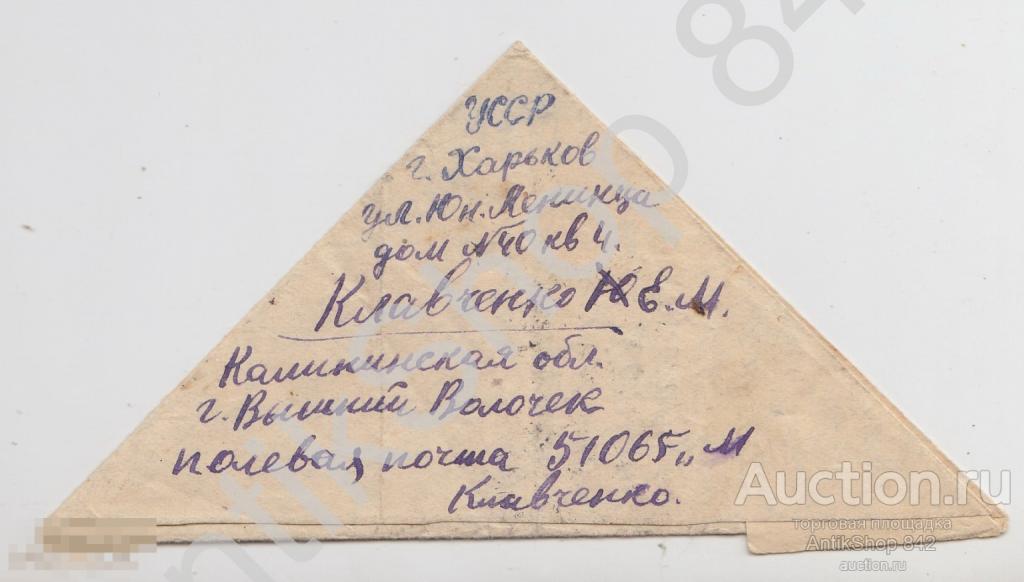 УССР
г. Харьков
ул. Юн. Ленинца
дом №40 кв 4.
Клавченко Е.М.
Калининская обл.
г. Вышний Волочек
полевая почта 51065 "М
Клавченко.
Auction.ru
торговая площадка
AntikShop 842
auction.ru
AntikShop 842